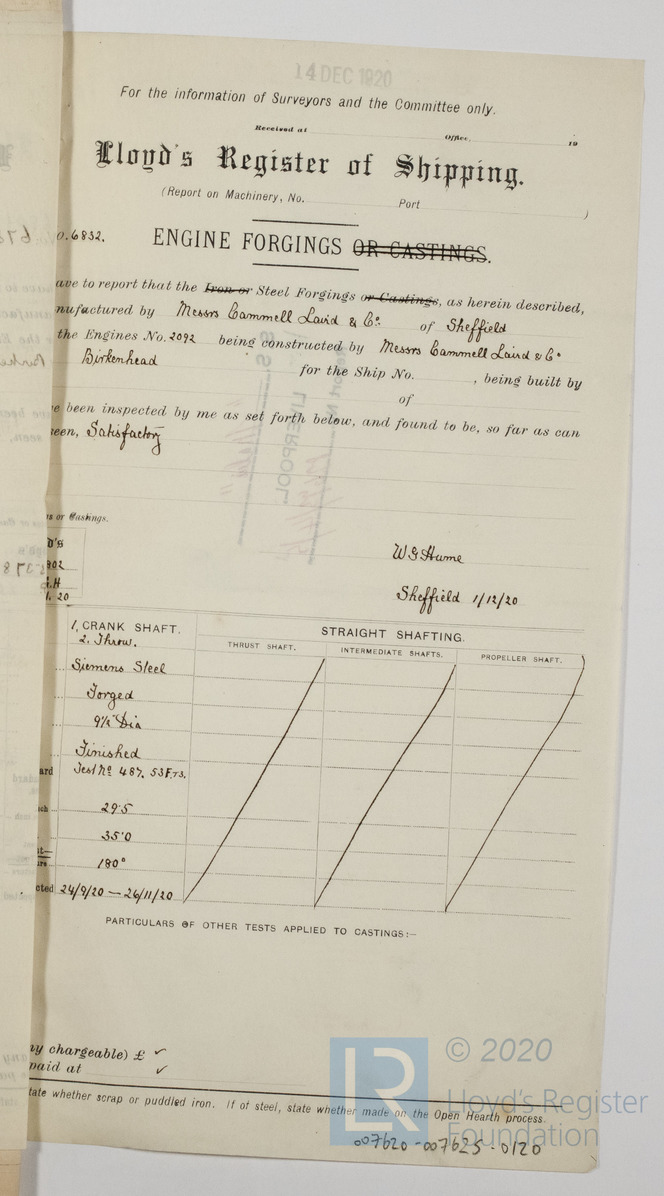 14 DEC 1920
For the information of Surveyors and the Committee only.
Received at Office, 19
Lloyd's Register of Shipping.
(Report on Machinery, No. Port )
o. 6832.
ENGINE FORGINGS OR CASTINGS.
ave to report that the Iron or Steel Forgings or Castings, as herein described,
nufactured by Messrs Cammell Laird & Co. of Sheffield
the Engines No. 2092 being constructed by Messrs Cammell Laird & Co
Birkenhead for the Ship No. , being built by
of
e been inspected by me as set forth below, and found to be, so far as can
seen, Satisfactory
LIVERPOOL.
s or Castings.
D'S
802
.H
. 20
W G Hume
Sheffield 1/12/20
1, CRANK SHAFT.
2. Throw.
STRAIGHT SHAFTING.
THRUST SHAFT. INTERMEDIATE SHAFTS. PROPELLER SHAFT.
Siemens Steel
Forged
9½" Dia
Finished
ard Test No 487. 53F.TS.
ch 29.5
35.0
180°
cted 24/9/20 — 26/11/20
PARTICULARS OF OTHER TESTS APPLIED TO CASTINGS:—
ny chargeable) £ ✓
paid at ✓
tate whether scrap or puddled iron. If of steel, state whether made on the Open Hearth process.
LR
© 2020
Lloyd's Register
Foundation
007620-007625-0120